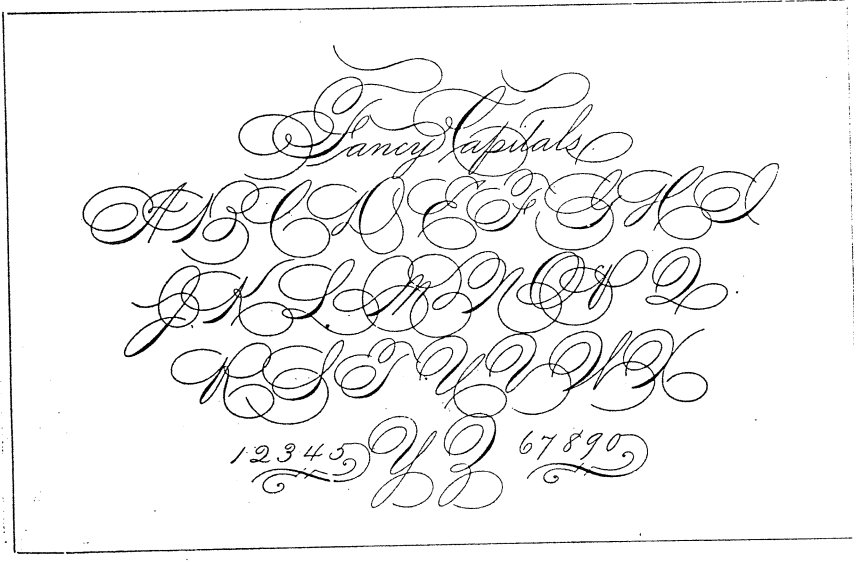 Fancy Capitals.
A B C D E F G H I
J K L M N O P Q
R S T U V W X
1 2 3 4 5 Y Z 6 7 8 9 0